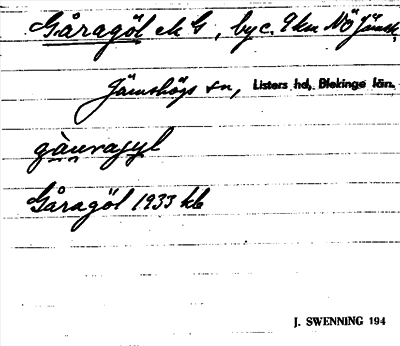 Gåragöl ek G, by c. 9 km NÖ Jämsh,
Jämshögs sn, Listers hd, Blekinge län.
gàuragyl
Gåragöl 1933 kb
J. SWENNING 194